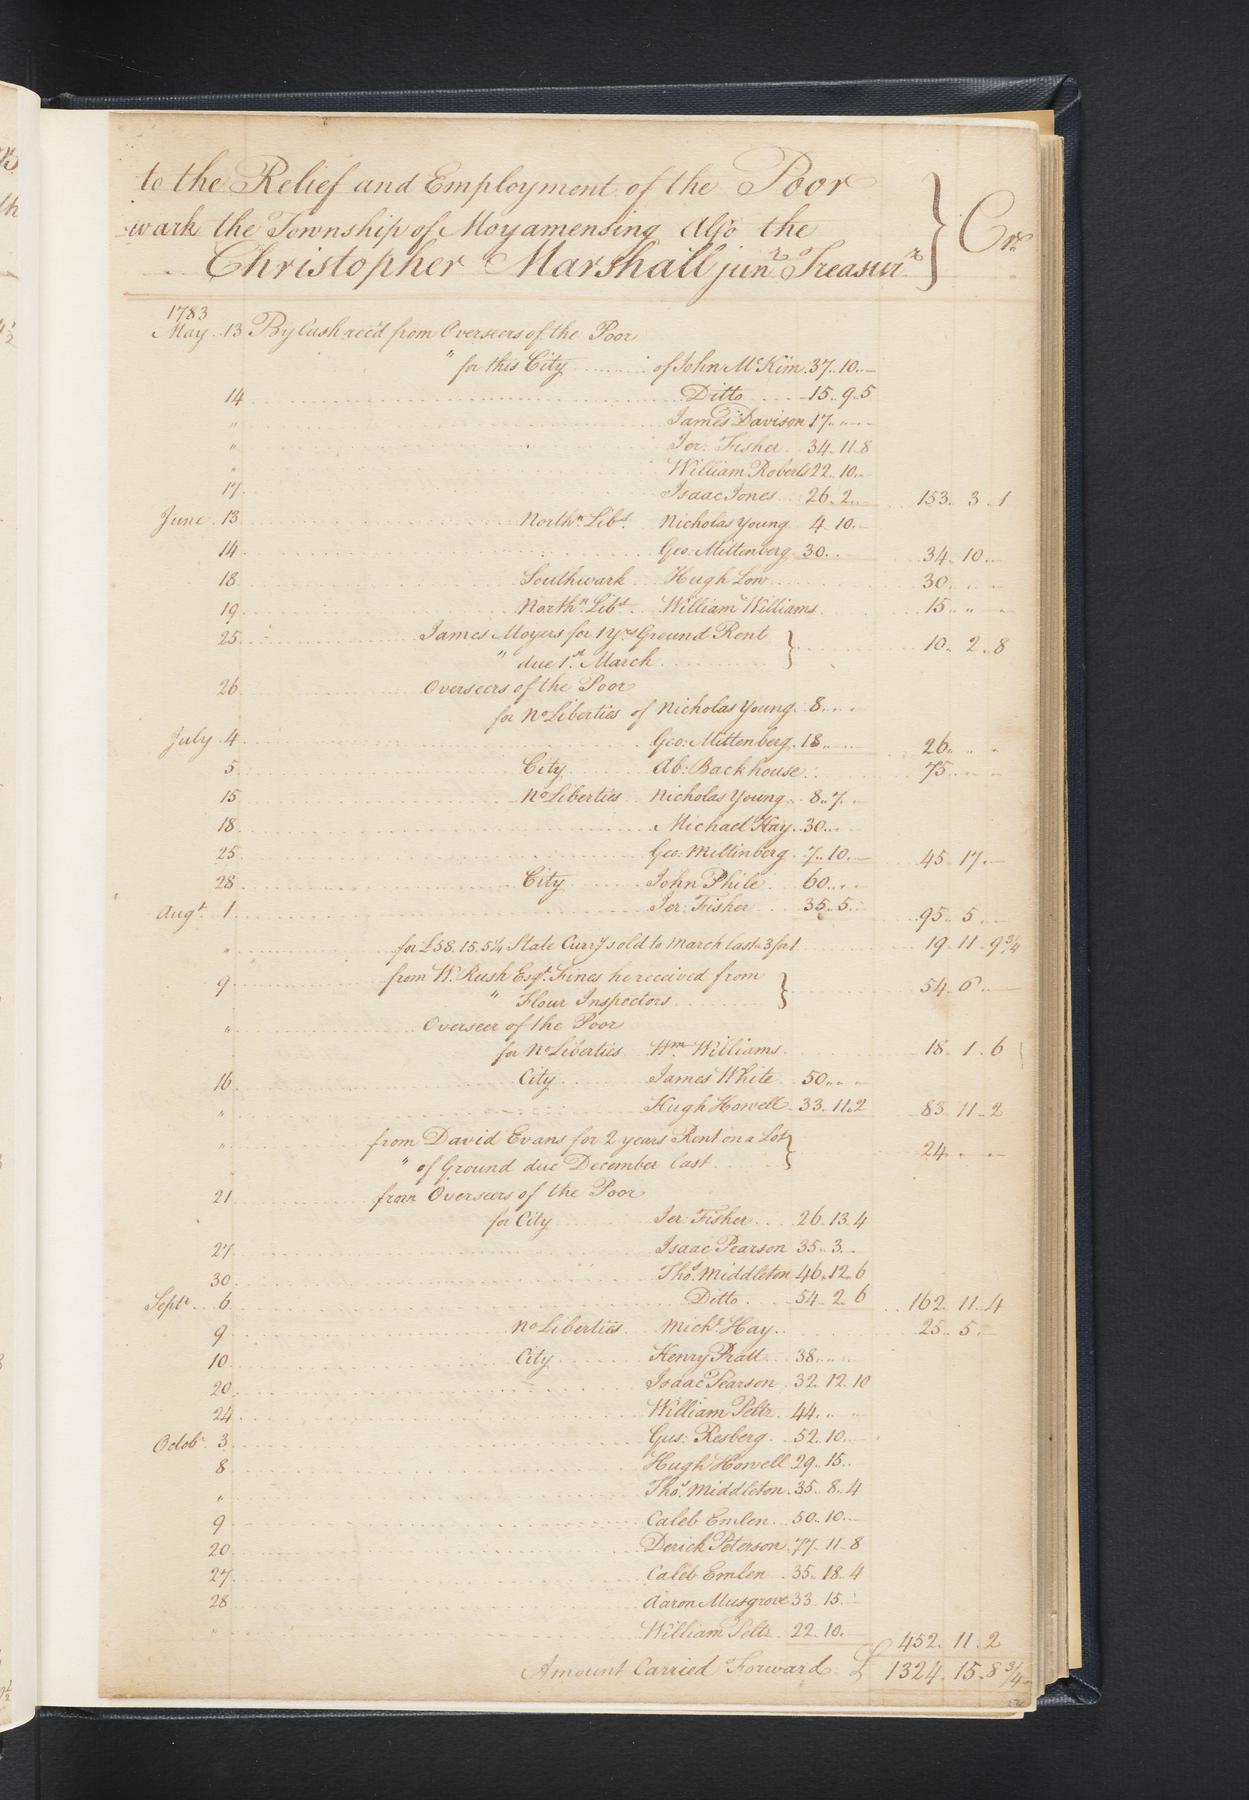 to the Relief and Employment of the Poor
wark the Township of Moyamensing Also the } Cr.
Christopher Marshall junr. Treasurr.
1783
May 13 By Cash rec'd from Overseers of the Poor
" for this City of John McKim 37..10..—
14 Ditto 15..9..5
" James Davison 17..".—
" Jer: Fisher 34..11..8
" William Roberts 22..10..
17 Isaac Jones 26..2.. 153..3..1
June 13 Northn. Libs. Nicholas Young 4..10..—
14 Geo: Mittenberg 30.. 34..10..—
18 Southwark Hugh Low 30..
19 Northn. Libs. William Williams 15..".—
25 James Moyers for 1 Yrs. Ground Rent }
" due 1st. March 10..2..8
26 Overseers of the Poor
for No Liberties of Nicholas Young 8..
July 4 Geo: Mittenberg 18.. 26..
5 City Ab: Backhouse 75..
15 No Liberties Nicholas Young 8..7..
18 Michael Hay 30..
25 Geo: Mittinberg 7..10..— 45..17..—
28 City John Phile 60..
Augt. 1 Jer: Fisher 35..5.. 95..5..
" for £58.15.5¼ State Curry sold to March last a 3 for 1 19..11..9¾
9 from W. Rush Esqr. Fines he received from }
" Flour Inspectors 54..6..—
" Overseer of the Poor
for No Liberties Wm. Williams 18..1..6
16 City James White 50..
" Hugh Howell 33..11..2 83..11..2
" from David Evans for 2 years Rent on a Lot }
" of Ground due December last 24..
21 from Overseers of the Poor
for City Jer: Fisher 26..13..4
27 Isaac Pearson 35..3..
30 Thos. Middleton 46..12..6
Sept. 6 Ditto 54..2..6 162..11..4
9 No Liberties Michl. Hay 25..5..—
10 City Henry Pratt 38..
20 Isaac Pearson 32..12..10
24 William Peltz 44..
Octobr. 3 Gus: Resberg 52..10..—
8 Hugh Howell 29..15..
" Thos. Middleton 35..8..4
9 Caleb Emlen 50..10..—
20 Derick Peterson 77..11..8
27 Caleb Emlen 35..18..4
28 Aaron Musgrove 33..15..
" William Peltz 22..10..— 452..11..2
Amount Carried Forward £ 1324..15..8¾